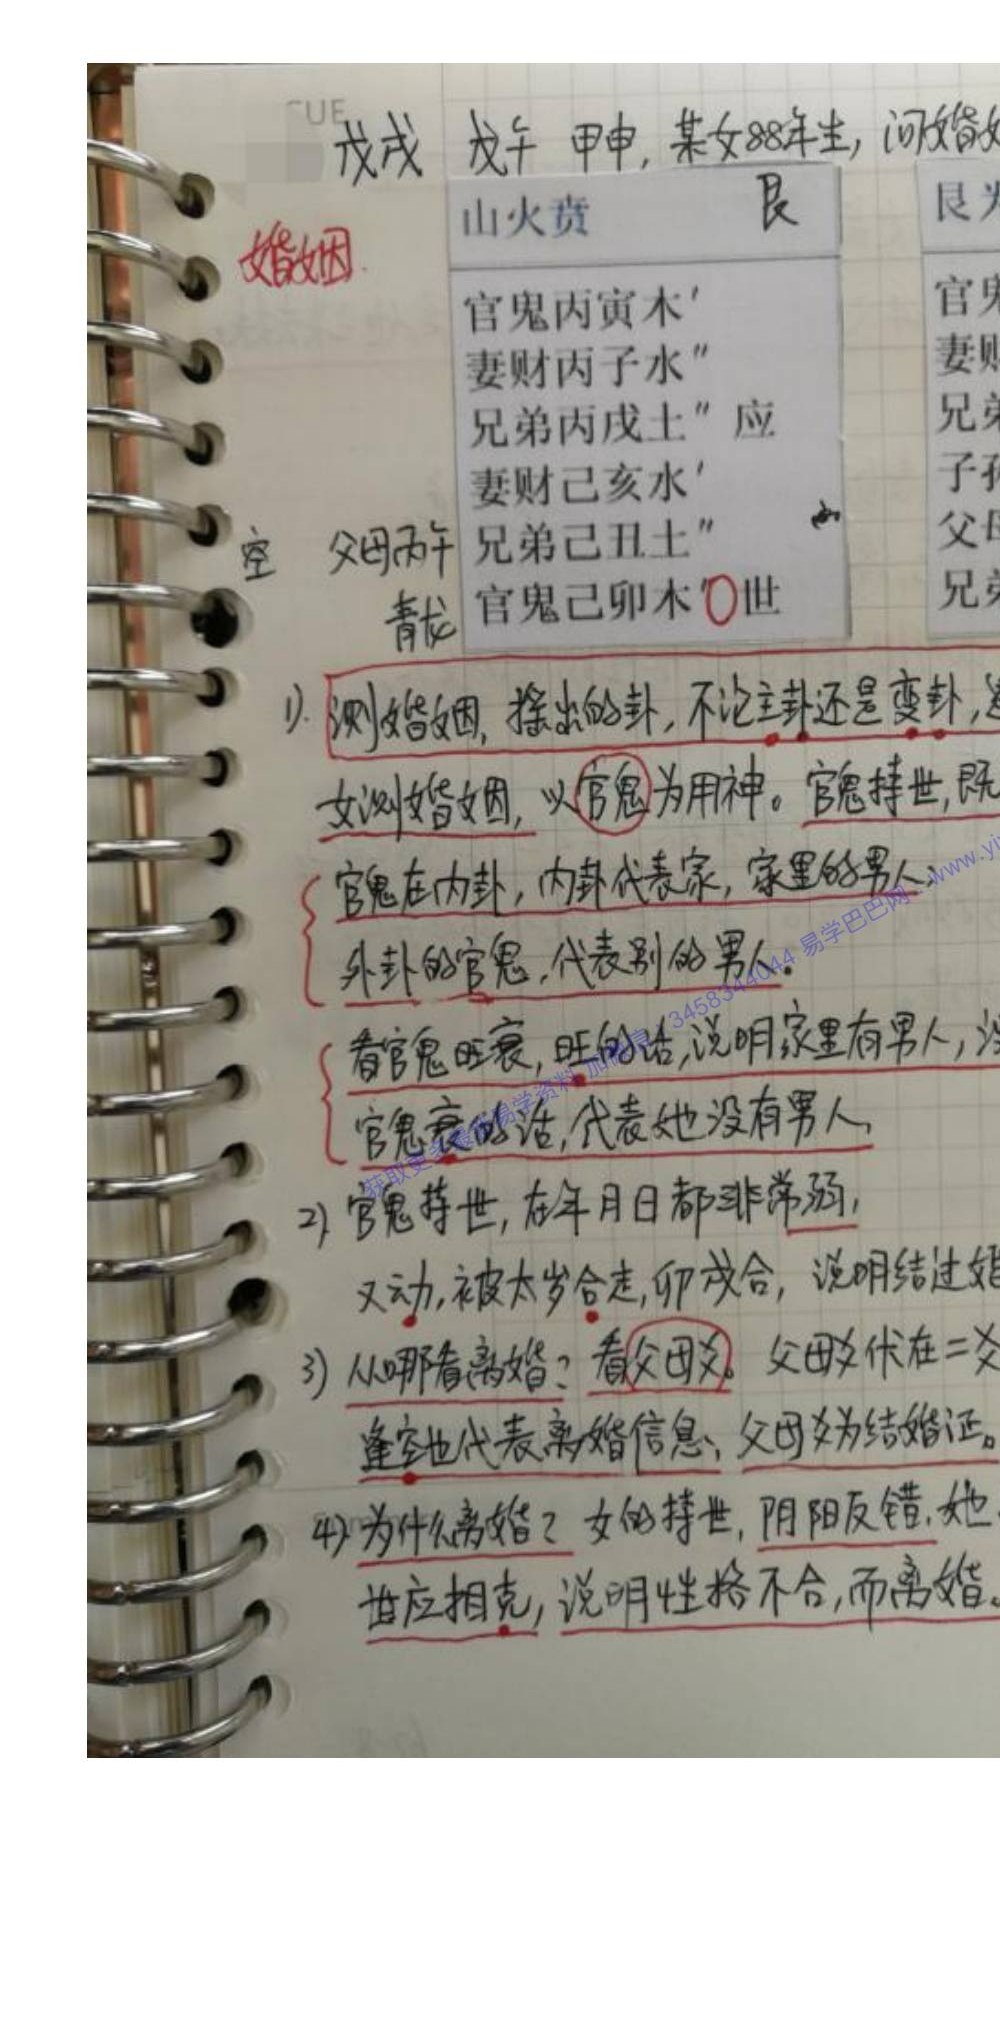 CUE
戊戌 戊午 甲申，某女88年生，问婚姻
婚姻.
山火贲 艮
艮为
官鬼丙寅木′
妻财丙子水″
兄弟丙戌土″ 应
妻财己亥水′
空 父母丙午 兄弟己丑土″
青龙 官鬼己卯木′〇世
官鬼
妻财
兄弟
子孙
父母
兄弟
1). 测婚姻，摇出的卦，不论主卦还是变卦，
女测婚姻，以官鬼为用神。官鬼持世，既
官鬼在内卦，内卦代表家，家里的男人，
外卦的官鬼，代表别的男人。
看官鬼旺衰，旺的话，说明家里有男人，没
官鬼衰的话，代表她没有男人，
2) 官鬼持世，在年月日都非常弱，
又动，被太岁合走，卯戌合，说明结过婚
3) 从哪看离婚？看父母爻。父母爻伏在二爻
逢空也代表离婚信息，父母爻为结婚证。
4) 为什么离婚？女的持世，阴阳反错，她
世应相克，说明性格不合，而离婚。
获取更多最新易学资料 加微信：3458344044 易学巴巴网：www.yi